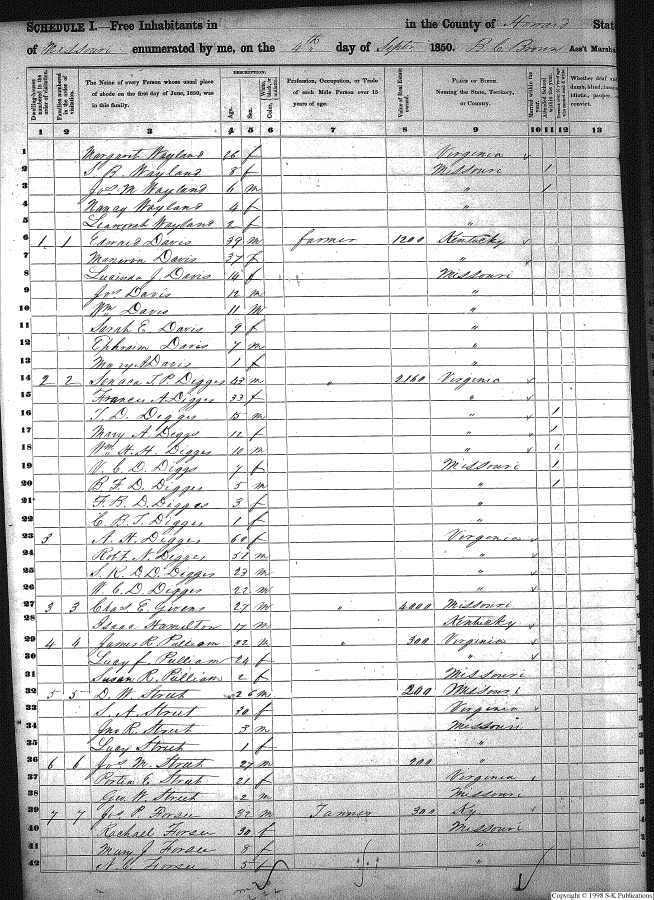 SCHEDULE I.—Free Inhabitants in in the County of Howard State
of Missouri enumerated by me, on the 4th day of Septr 1850. B. C. Brown Ass't Marshal
Dwelling-houses numbered in the order of visitation.
Families numbered in the order of visitation.
The Name of every Person whose usual place of abode on the first day of June, 1850, was in this family.
DESCRIPTION.
Age.
Sex.
Color, White, black, or mulatto.
Profession, Occupation, or Trade of each Male Person over 15 years of age.
Value of Real Estate owned.
PLACE OF BIRTH. Naming the State, Territory, or Country.
Married within the year.
Attended School within the year.
Whether deaf and dumb, blind, insane, idiotic, pauper, or convict.
1 2 3 4 5 6 7 8 9 10 11 12 13
1 Margaret Wayland 26 f Virginia
2 S. B. Wayland 8 f Missouri 1
3 Jos M Wayland 6 m " 1
4 Nancy Wayland 4 f "
5 Wayland 2 f "
6 1 1 Edward Davis 39 m farmer 1200 Kentucky
7 Davis 37 f "
8 Lucinda J. Davis 14 f Missouri
9 Jos Davis 12 m "
10 Wm Davis 11 M "
11 Sarah E. Davis 9 f "
12 Ephraim Davis 7 m "
13 Mary A Davis 1 f "
14 2 2 Senaca T. P. Digges 43 m " 2160 Virginia
15 Frances A. Digges 33 f "
16 T. D. Digges 15 m " 1
17 Mary A. Diggs 12 f " 1
18 Wm H. H. Digges 10 m " 1
19 V. C. D. Diggs 7 f Missouri 1
20 B. F. D. Digges 5 m " 1
21 F. B. D. Digges 3 f "
22 C. B. T. Digges 1 f "
23 3 A. H. Digges 60 f Virginia
24 Robt. N. Digges 51 m "
25 S. K. D. D. Digges 23 m "
26 W. C. D. Digges 22 m "
27 3 3 Chas E. Givens 27 m " 4000 Missouri
28 Isaac Hamilton 17 m Kentucky
29 4 4 James R. Pulliam 32 m " 300 Virginia
30 Lucy f. Pulliam 29 f "
31 Susan R. Pulliam 2 f Missouri
32 5 5 D. W. Street 26 m 200 Missouri
33 S. A. Street 30 f Virginia
34 Jno R. Street 3 m Missouri
35 Lucy Street 1 f "
36 6 6 Jos M. Street 27 m 200 "
37 Portia E. Street 21 f Virginia
38 Geo. W. Street 2 m Missouri
39 7 7 Jos P. Forsee 32 m Tanner 300 Ky
40 Rachael Forsee 30 f Missouri
41 Mary J Forsee 8 f "
42 A. C. Forsee 5 f "
Copyright © 1998 S-K Publications